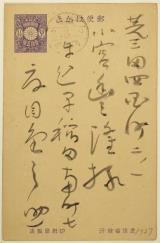 郵便はかき
芝三田四国町二ノ一
小宮豊隆様
牛込早稲田南町七
夏目金之助